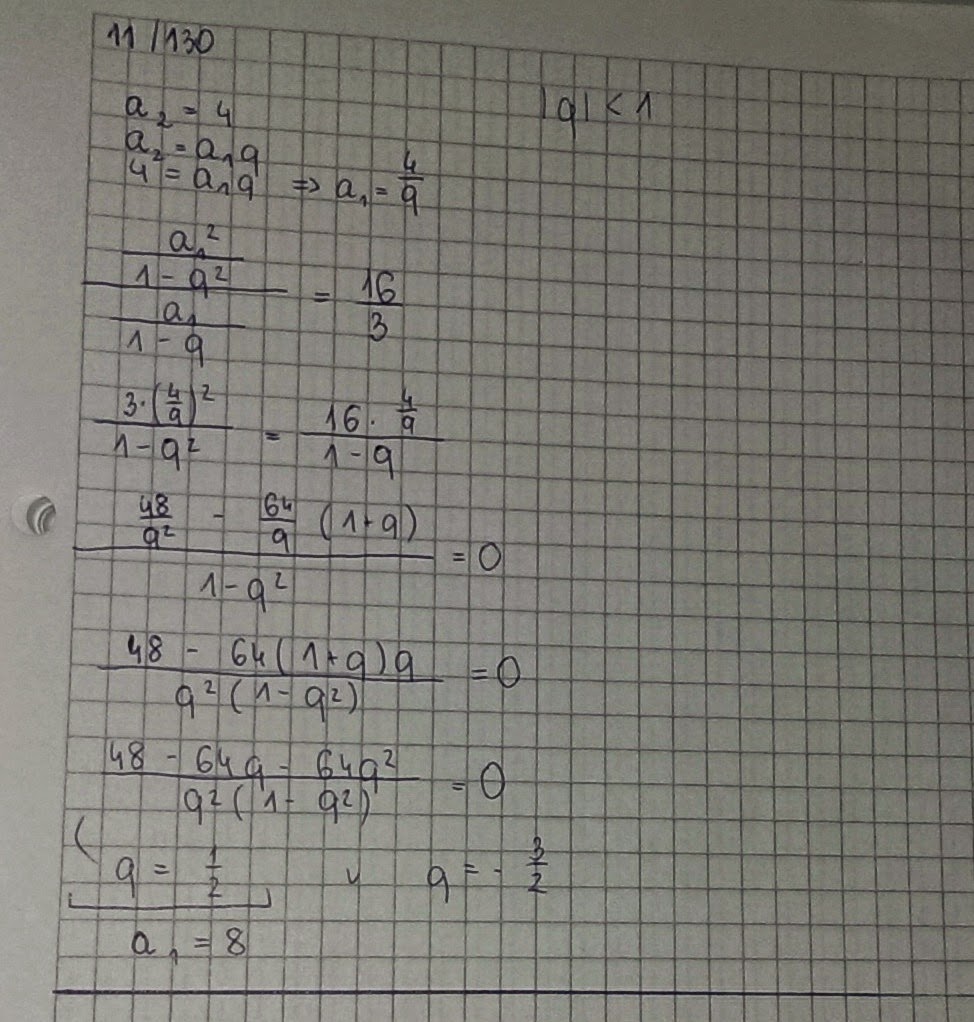 11/130
a₂ = 4 |q| < 1
a₂ = a₁q
4 = a₁q ⇒ a₁ = 4/q
(a₁²/(1-q²))/(a₁/(1-q)) = 16/3
(3·(4/q)²)/(1-q²) = (16·4/q)/(1-q)
(48/q² - 64/q (1+q))/(1-q²) = 0
(48 - 64(1+q)q)/(q²(1-q²)) = 0
(48 - 64q - 64q²)/(q²(1-q²)) = 0
q = 1/2 ∨ q = -3/2
a₁ = 8